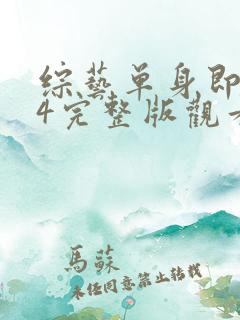 綜藝單身即
4完整版觀
馬蘇
未經同意禁止轉載